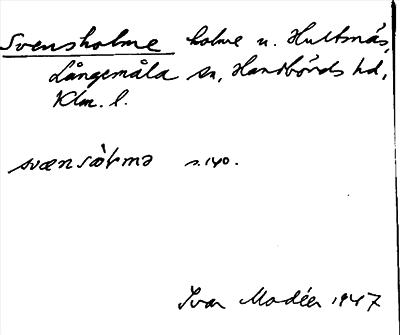 Svensholme holme u. Hultsnäs,
Långemåla sn, Handbörds hd,
Klm. l.
svænsåɫmə s. 140.
Ivar Modéer 1947